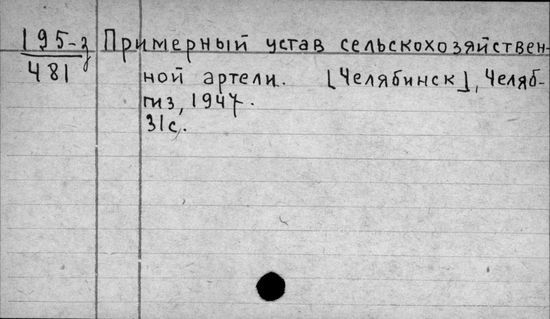 195-з Примерный устав сельскохозяйствен-
481 ной артели. [Челябинск], Челяб-
гиз, 1947.
31с.